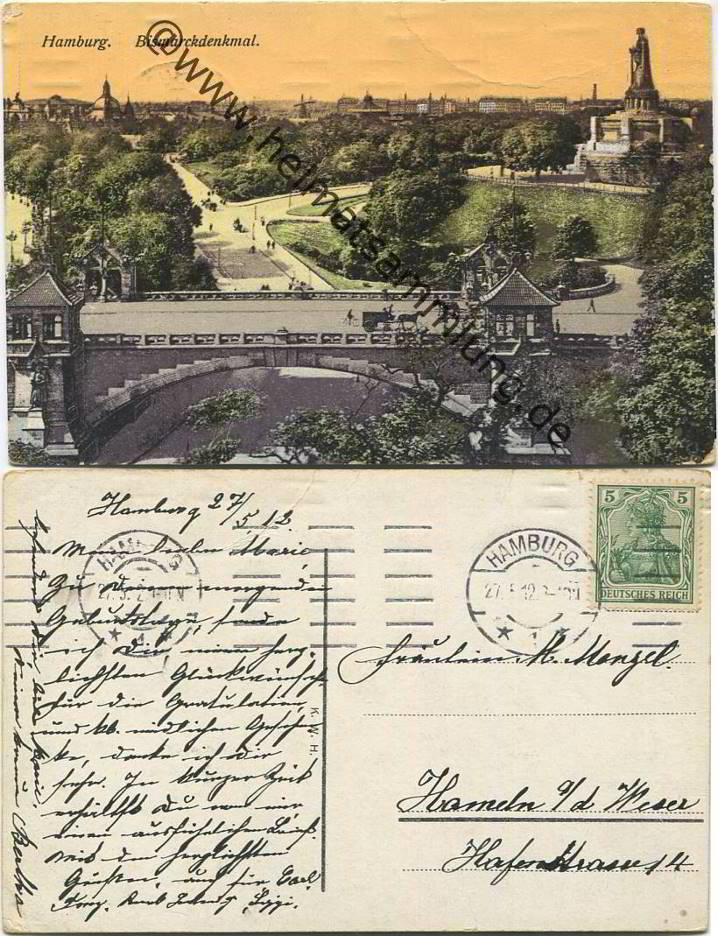 Hamburg. Bismarckdenkmal.
@www.heimatsammlung.de
Hamburg 27/5 12.
Meine liebe Marie,
Zu Deinem morgenden
Geburtstage, sende
ich Dir meine herz-
lichsten Glückwünsche
für die Gratulation,
und niedlichen Geschen-
ke, danke ich Dir
sehr. In kurzer Zeit
erhältst Du von mir
einen ausführlichen Brief.
Mit den herzlichsten
Grüßen, auch für Carl
Bertha
K. N. H.
HAMBURG
27.5.12
* 1 *
HAMBURG
27.5.12
* 1 *
5 5
DEUTSCHES REICH
Fräulein M. Menzel.
Hameln a/d Weser
Hafenstrasse 14